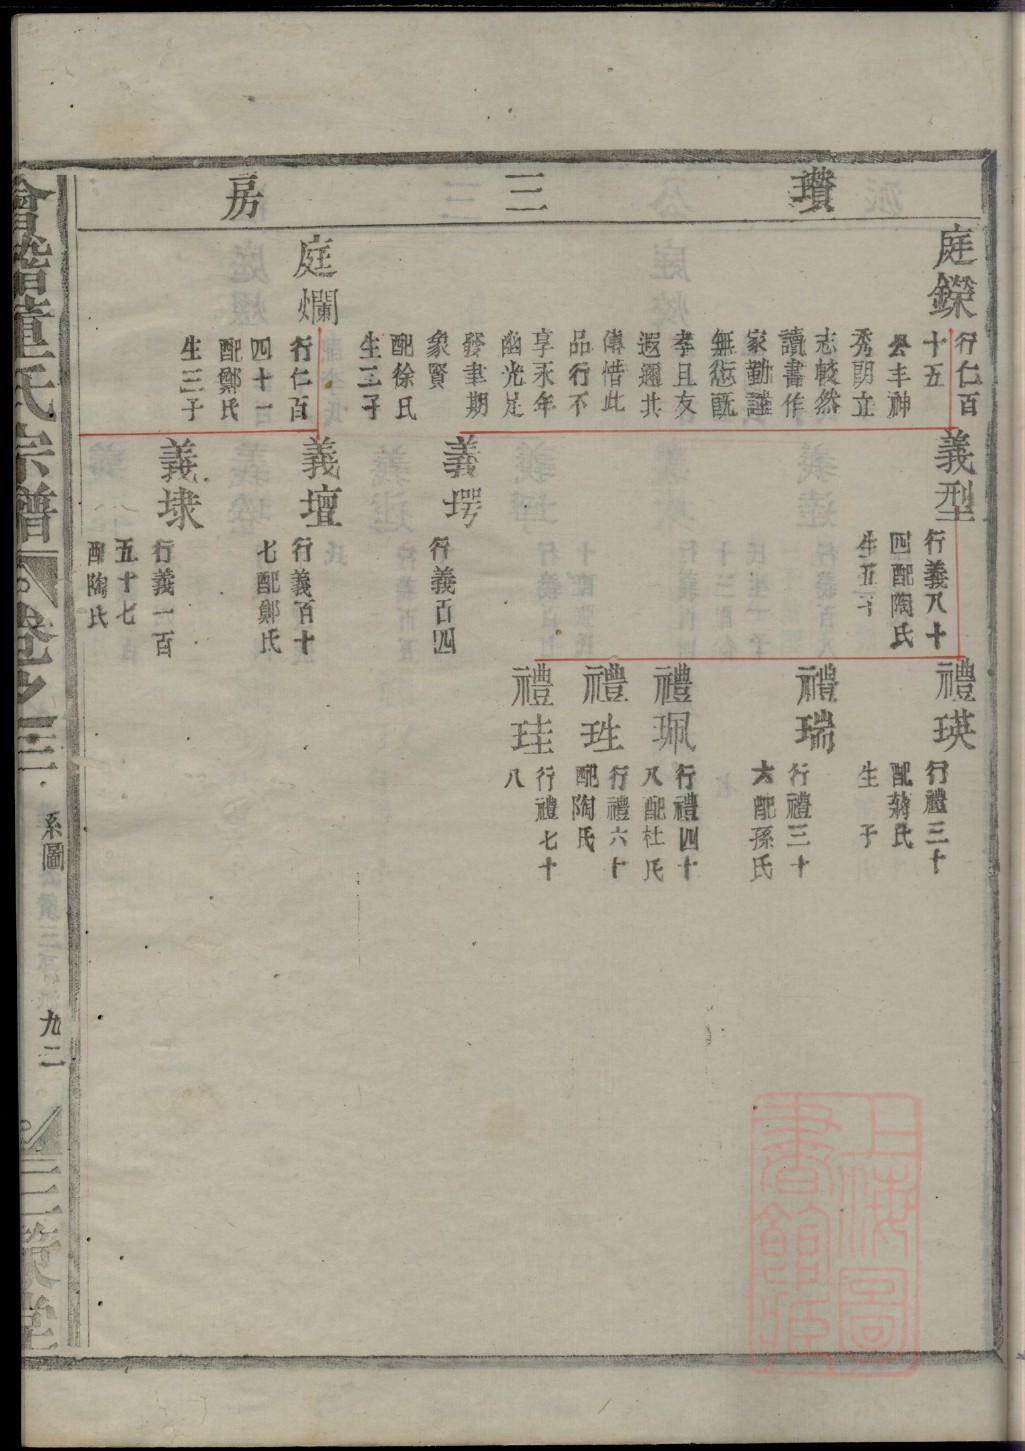 瓚三房
庭鑅
行仁百
十五
公丰神
秀朗立
志較然
讀書作
家勤謹
無愆既
孝且友
遐邇共
傳惜此
品行不
享永年
幽光足
發聿期
象賢
配徐氏
生二子
庭爛
行仁百
四十一
配鄭氏
生三子
義型
行義八十
四配陶氏
生五子
義堮
行義百四
義壇
行義百十
七配鄭氏
義埭
行義一百
五十七
配陶氏
禮瑛
行禮三十
配蔣氏
生 子
禮瑞
行禮三十
六配孫氏
禮珮
行禮四十
八配杜氏
禮珄
行禮六十
配陶氏
禮珪
行禮七十
八
會稽董氏宗譜
卷之三
系圖
九二
三策堂
上海圖
書館藏